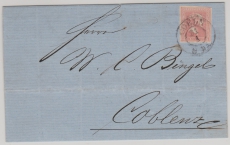 Herrn
W. C. Bingel
Coblenz